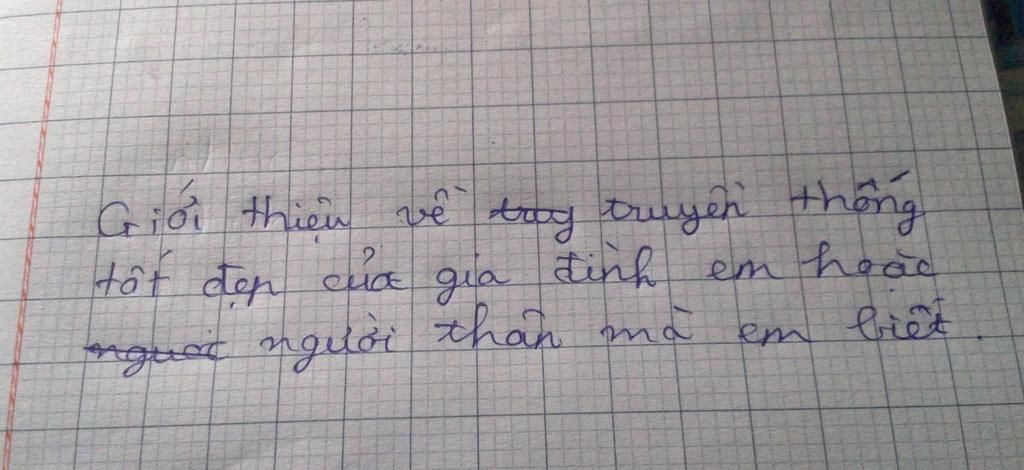 Giới thiệu về truyền thống
tốt đẹp của gia đình em hoặc
người thân mà em biết.